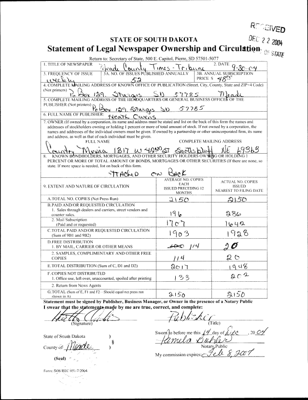 RECEIVED
DEC 22 2004
STATE OF SOUTH DAKOTA
Statement of Legal Newspaper Ownership and Circulation
Return to: Secretary of State, 500 E. Capitol, Pierre, SD 57501-5077
1. TITLE OF NEWSPAPER
2. DATE
Meade County Times-Tribune
9-30-04
3. FREQUENCY OF ISSUE
3A. NO. OF ISSUES PUBLISHED ANNUALLY
3B. ANNUAL SUBSCRIPTION
weekly
52
PRICE $
4. COMPLETE MAILING ADDRESS OF KNOWN OFFICE OF PUBLICATION (Street, City, County, State and ZIP+4 Code)
(Not printers)
PO Box 129, Sturgis SD 57785 Meade
5. COMPLETE MAILING ADDRESS OF THE HEADQUARTERS OR GENERAL BUSINESS OFFICES OF THE
PUBLISHER (Not printers)
PO Box 129, Sturgis SD 57785
6. FULL NAME OF PUBLISHER
7. OWNER (If owned by a corporation, its name and address must be stated and list on the back of this form the names and
addresses of stockholders owning or holding 1 percent or more of total amount of stock. If not owned by a corporation, the
names and addresses of the individual owners must be given. If owned by a partnership or other unincorporated firm, its name
and address, as well as that of each individual must be given.
FULL NAME
COMPLETE MAILING ADDRESS
Country Media
NE
8. KNOWN BONDHOLDERS, MORTGAGEES, AND OTHER SECURITY HOLDERS OWNING OR HOLDING 1
PERCENT OR MORE OF TOTAL AMOUNT OF BONDS, MORTGAGES OR OTHER SECURITIES (If there are none, so
state. If more space is needed, list on back of this form.
on Back
9. EXTENT AND NATURE OF CIRCULATION
AVERAGE NO. COPIES
EACH
ISSUED PRECEDING 12
MONTHS
ACTUAL NO. COPIES
ISSUED
NEAREST TO FILING DATE
A. TOTAL NO. COPIES (Net Press Run)
2150
2150
B. PAID AND/OR REQUESTED CIRCULATION
1. Sales through dealers and carriers, street vendors and
counter sales.
196
286
2. Mail Subscription
(Paid and/or requested)
1707
1642
C. TOTAL PAID AND/OR REQUESTED CIRCULATION
(Sum of 9B1 and 9B2)
1903
1928
D. FREE DISTRIBUTION
BY MAIL, CARRIER OR OTHER MEANS
114
20
SAMPLES, COMPLIMENTARY AND OTHER FREE
COPIES
114
20
E. TOTAL DISTRIBUTION (Sum of C, D1 and D2)
2017
1948
F. COPIES NOT DISTRIBUTED
1. Office use, left over, unaccounted, spoiled after printing
133
202
2. Return from News Agents
G. TOTAL (Sum of E, F1 and F2 - Should equal net press run
shown in A)
2150
2150
Statement must be signed by Publisher, Business Manager, or Owner in the presence of a Notary Public
I swear that the statements made by me are true, correct, and complete:
Publisher
(Signature)
(Title)
State of South Dakota )
Sworn to before me this
County of Meade )
Notary Public
(Seal)
My commission expires: Feb 8, 2007